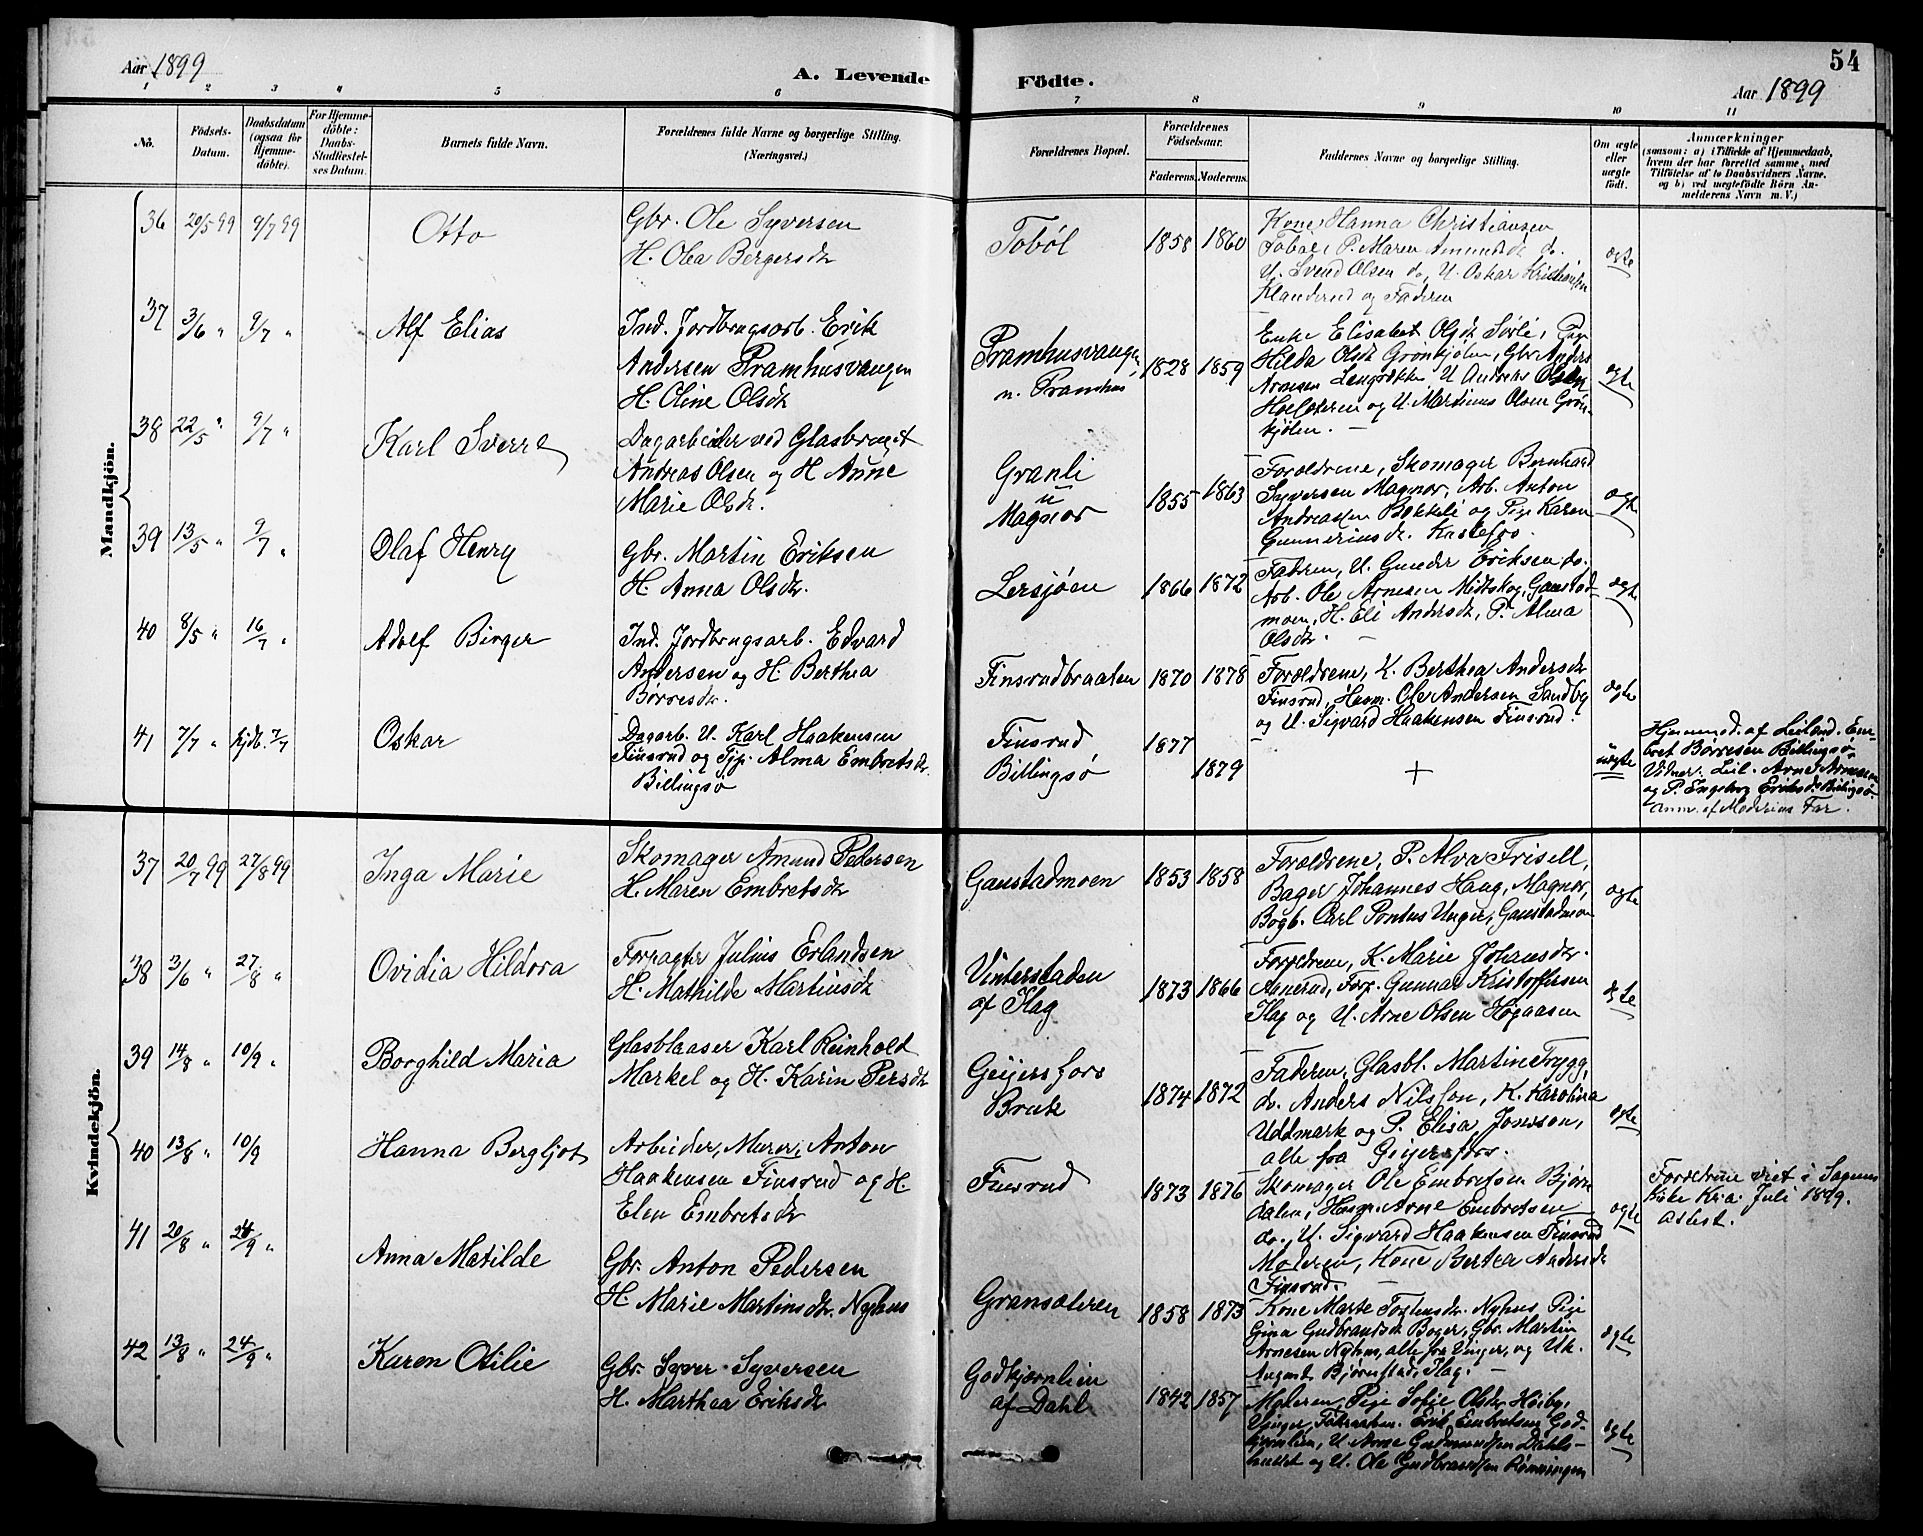 54
Aar 1899
A. Levende
Födte.
Aar 1899
1 2 3 4 5 6 7 8 9 10 11
No.
Födsels-
Datum.
Daabsdatum
(ogsaa for
Hjemme-
döbte).
For Hjemme-
döbte:
Daabs-
Stadfæstel-
ses Datum.
Barnets fulde Navn.
Forældrenes fulde Navne og borgerlige Stilling.
(Næringsvei.)
Forældrenes Bopæl.
Forældrenes
Födselsaar.
Faderens. Moderens.
Faddernes Navne og borgerlige Stilling.
Om ægte
eller
uægte
födt.
Anmærkninger
(saasom: a) i Tilfælde af Hjemmedaab,
hvem der har forrettet samme, med
Tilföielse af to Daabsvidners Navne,
og b) ved uægtefödte Börn An-
melderens Navn m. V.)
Mandkjön.
36 20/5 99 9/7 99 Otto
Gbr. Ole Syversen
H. Olea Bergersdtr
Toböl 1858 1860
Kone Hanna Christiansen
Toböl, P. Maren Amundsdt do.
U. Svend Olsen do, U. Oskar Kristiansen
Klanderud og Faderen
ægte
37 3/6 " 9/7 " Alf Elias
Ind. Jordbrugsarb. Erik
Andersen Pramhusvangen
H. Oline Olsdt
Pramhusvangen
u. Pramhus
1828 1859
Enke Elisabet Olsdt Sörli, Pige
Hilda Olsdt Grönkjölen, Gbr Anders
Arnesen Lengrökken, U Andreas Olsen
og U. Martinus Olsen Grön-
kjölen. -
ægte
38 22/5 " 9/7 " Karl Sverre
Dagarbeider ved Glasbruget
Andreas Olsen og H Anne
Marie Olsdt.
Granli
u
Magnor
1855 1863
Forældrene, Skomager Bernhard
Syversen Magnor, Arb. Anton
Andreassen Bekkeli og Pige Karen
Gunneriusdt.
ægte
39 13/5 " 9/7 " Olaf Henry
Gbr. Martin Eriksen
H. Anna Olsdtr.
Lersjöen 1866 1872
Faderen, U. Gunder Eriksen do.
Arb. Ole Arnesen Midtskog, Gaustad-
moen, H. Eli Andersdt, P. Alma
Olsdtr. -
ægte
40 8/5 " 16/7 " Adolf Birger
Ind. Jordbrugsarb. Edvard
Andersen og H. Berthea
Börresdtr.
Finsrudbraaten 1870 1878
Forældrene, K. Berthea Andersdtr
Finsrud, Ole Andersen Sandby
og U. Sigvard Haakensen Finsrud.
ægte
41 7/7 " hjdb. 7/7 Oskar
Dagarb. U. Karl Haakensen
Finsrud og Tjp. Alma Embretsdtr.
Billingsö
Finsrud
Billingsö
1877
1879
+
uægte
Hjemmed. af Leilend. Em-
bret Börresen Billingsö
Vidner: Leil. Arne Arnesen
og P. Engeborg Eriksdt Billingsö.
Anm. af Moderens Far.
Kvindekjön.
37 20/7 99 27/8 99 Inga Marie
Skomager Amund Pedersen
H. Maren Embretsdtr
Gaustadmoen 1853 1858
Forældrene, P. Alva Frisell,
Bager Johannes Haug, Magnor,
Bogb. Carl Pontus Unger, Gaustadmoen
ægte
38 3/6 " 27/8 " Ovidia Hildora
Forpagter Julius Erlandsen
H. Mathilde Martinsdt
Vinterstaden
af Hag
1873 1866
Forældrene, K. Marie Johansdtr.
Forp. Gunnar Kristoffersen
Hag og U. Arne Olsen Högaasen
ægte
39 14/8 " 10/9 " Borghild Maria
Glasblaaser Karl Reinhold
Markel og H. Karin Persdtr
Geijersfors
Bruk
1874 1872
Faderen, Glasbl. Martin Trygg,
do. Anders Nilsson, K. Karolina
Uddmark og P. Elisa Jonsson,
alle fra Geijersfors.
ægte
40 13/8 " 10/9 Hanna Bergljot
Arbeider, Murer, Anton
Haakensen Finsrud og H
Elen Embretsdtr
Finsrud 1873 1876
Skomager Ole Embretsen Björn
dalen, Arne Embretsen
do., U. Sigvard Haakensen Finsrud
Moderen, Kone Bertea Andersdt
Finsrud. -
ægte
Forældrene viet i Sagenes
Kirke Kr.a. Juli 1899.
Attest.
41 20/8 " 24/9 " Anna Matilde
Gbr. Anton Pedersen
H. Marie Martinsdtr. Nyhus
Gransæteren 1858 1873
Kone Marte Nyhus, Pige
Gina Gudbrandsdt Boger, Gbr. Martin
Arnesen Nyhus, alle fra Vinger, og Uk.
August Björnstad, Hag. -
ægte
42 13/8 " 24/9 " Karen Otilie
Gbr. Syver Syversen
H. Marthea Eriksdtr
Godkjernlien
af Dahl
1842 1857
Moderen, Pige Sofie Olsdtr Höiby,
Vinger, Erik Embretsen God-
kjernlien, U. Arne Gudmundsen Dahls-
og U. Ole Gudbrandsen Rönningen
ægte